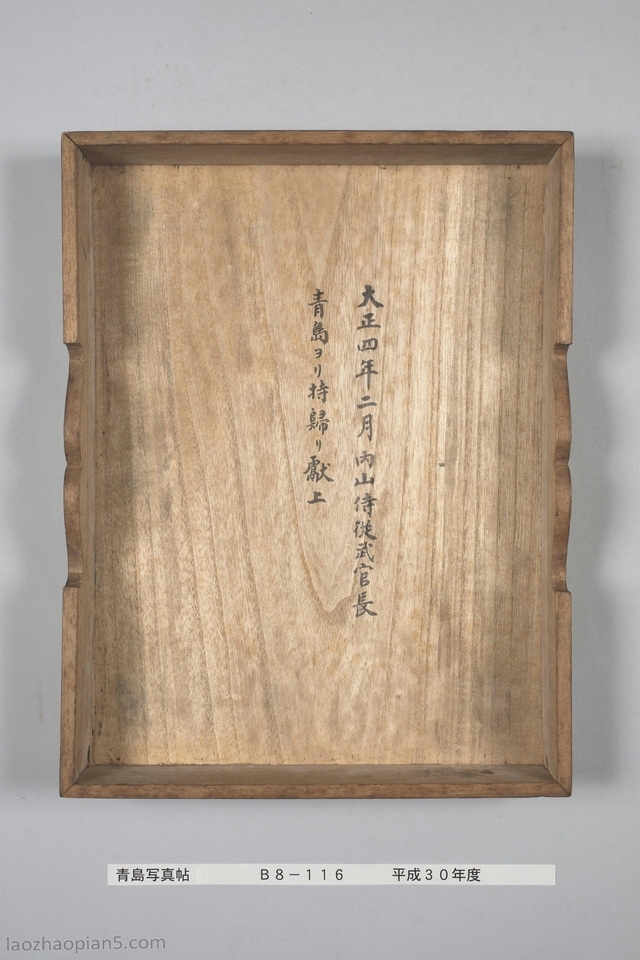 大正四年二月內山侍從武官長
青島ヨリ持歸リ獻上
青島写真帖 B8-116 平成30年度
laozhaopian5.com